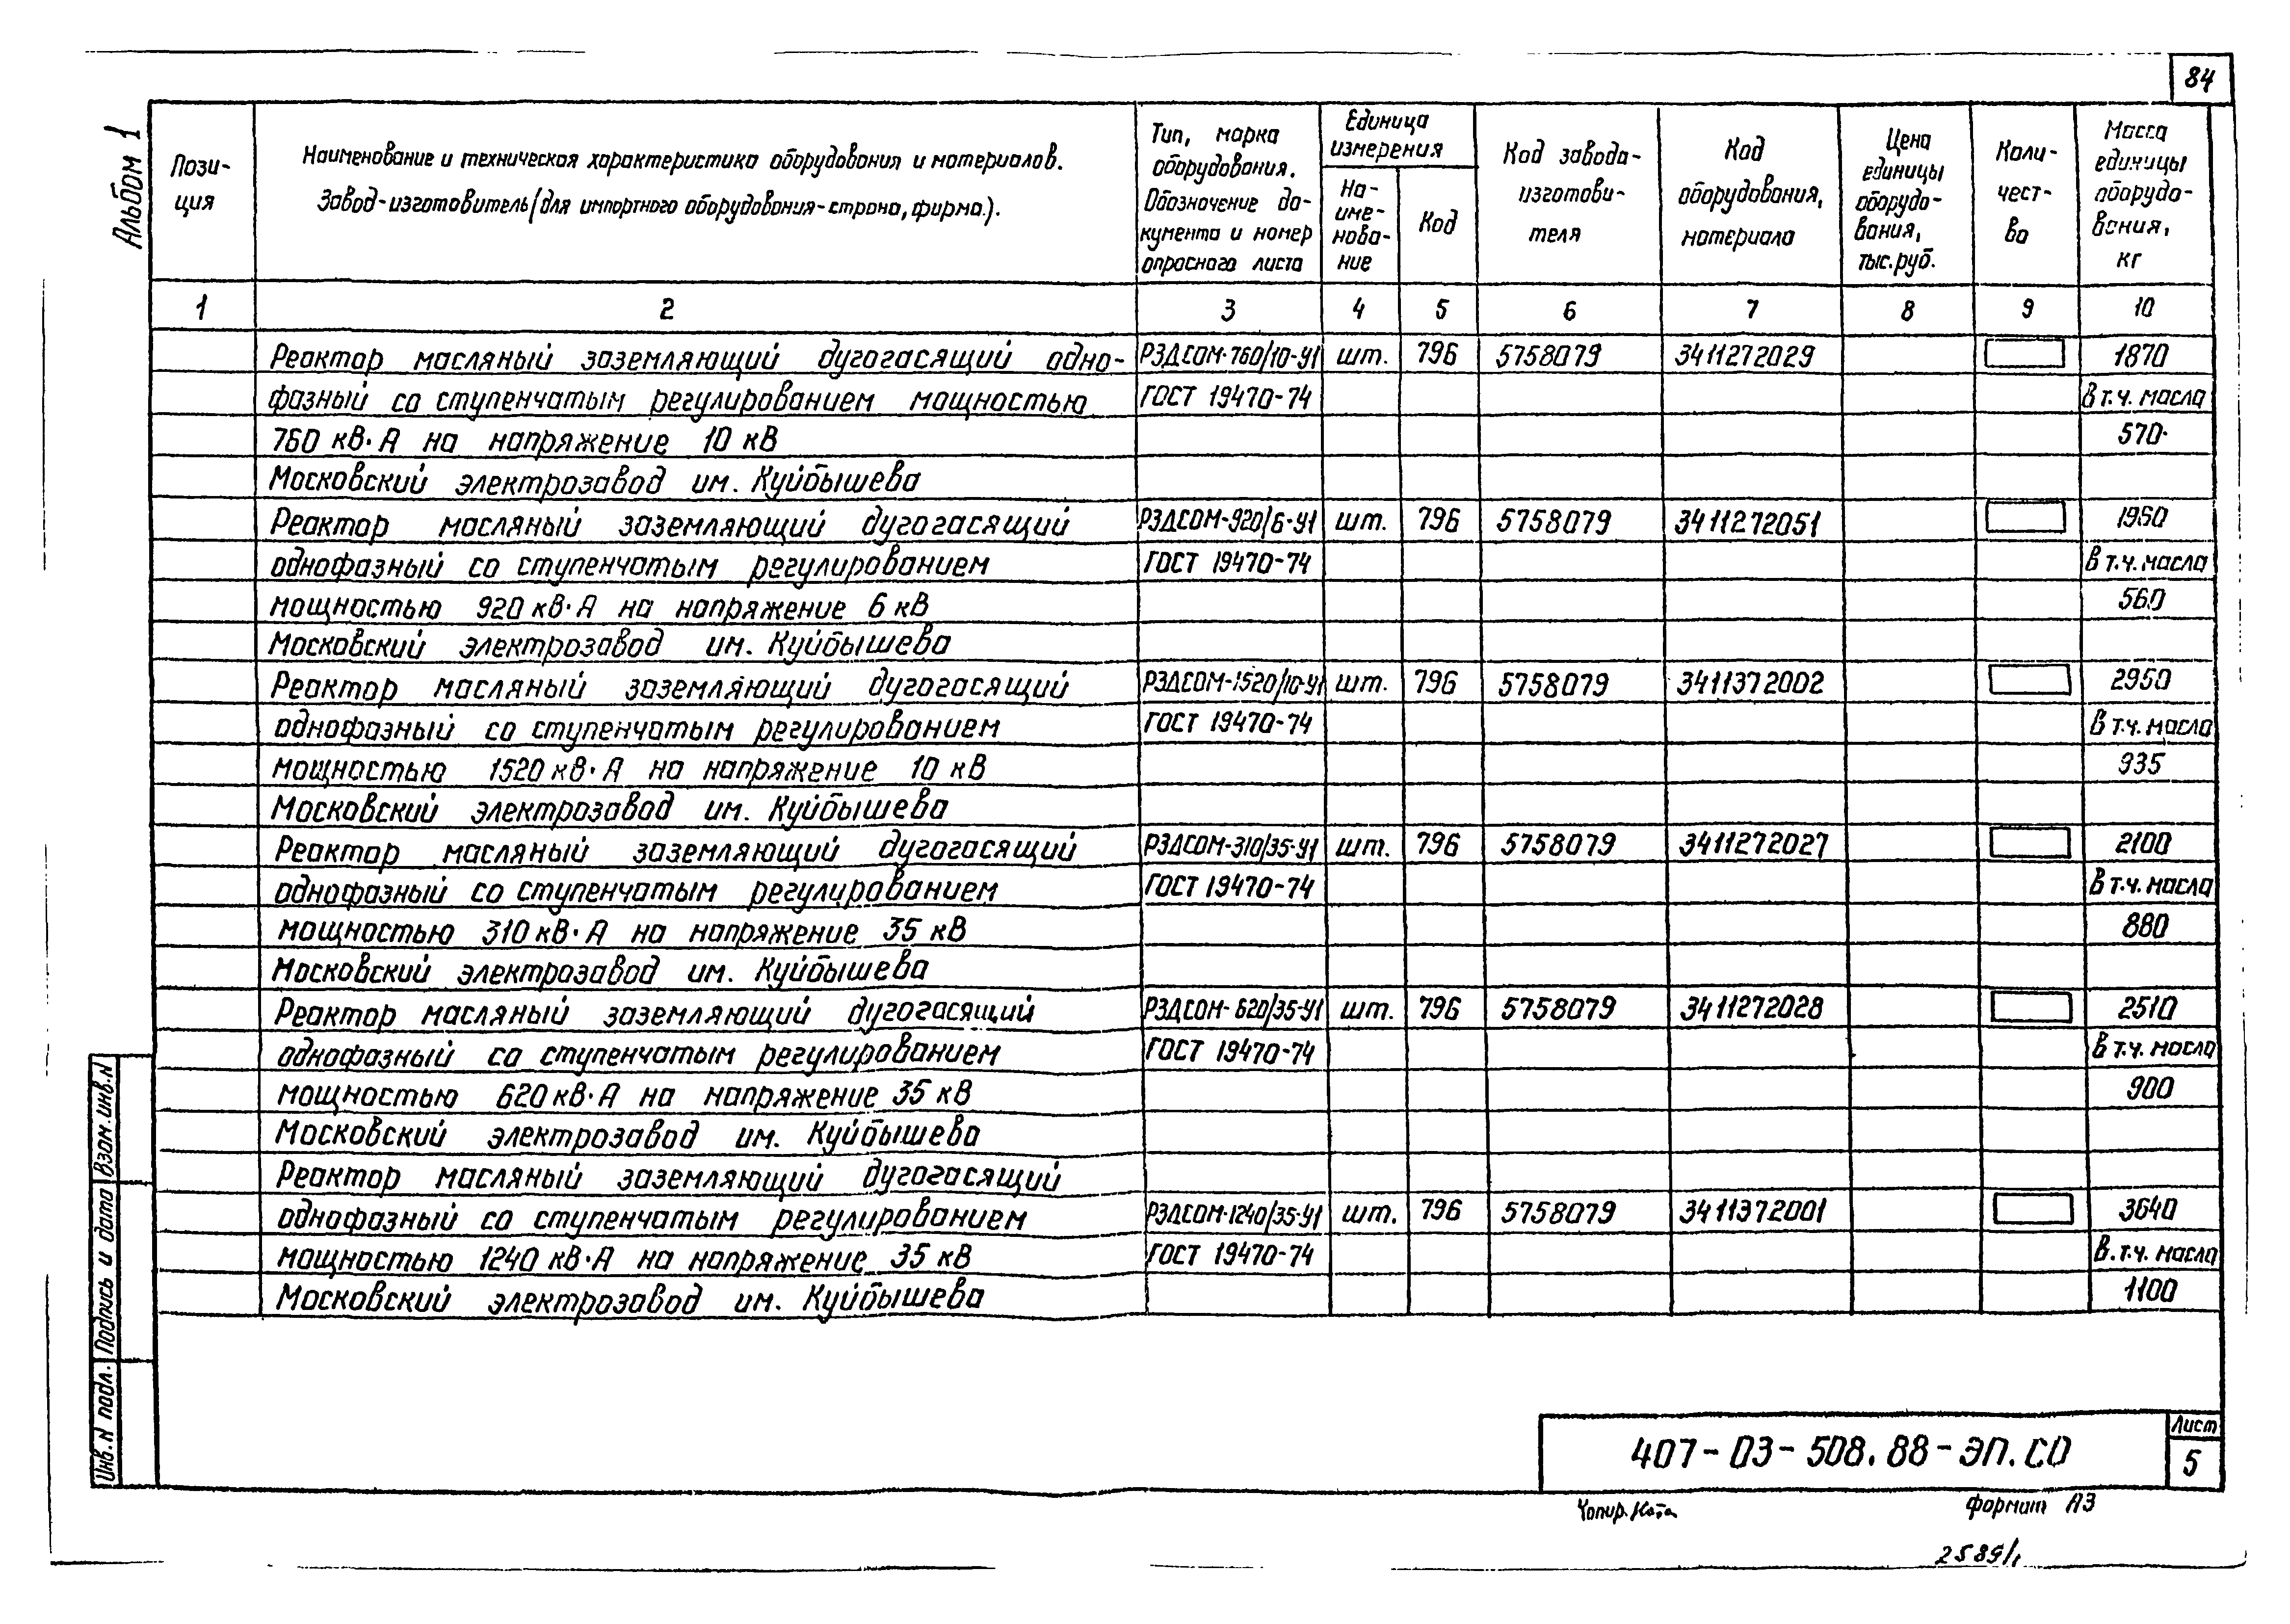 84
Альбом 1
Пози-
ция
Наименование и техническая характеристика оборудования и материалов.
Завод-изготовитель (для импортного оборудования-страна, фирма.).
Тип, марка
оборудования.
Обозначение до-
кумента и номер
опросного листа
Единица
измерения
На-
име-
нова-
ние
Код
Код завода-
изготови-
теля
Код
оборудования,
материала
Цена
единицы
оборудо-
вания,
тыс.руб.
Коли-
чест-
во
Масса
единицы
оборудо-
вания,
кг
1 2 3 4 5 6 7 8 9 10
Реактор масляный заземляющий дугогасящий одно- РЗДСОМ-760/10-У1 шт. 796 5758079 3411272029 1870
фазный со ступенчатым регулированием мощностью ГОСТ 19470-74 В т.ч. масла
760 кВ·А на напряжение 10 кВ 570
Московский электрозавод им. Куйбышева
Реактор масляный заземляющий дугогасящий РЗДСОМ-920/6-У1 шт. 796 5758079 3411272051 1960
однофазный со ступенчатым регулированием ГОСТ 19470-74 В т.ч. масла
мощностью 920 кВ·А на напряжение 6 кВ 560
Московский электрозавод им. Куйбышева
Реактор масляный заземляющий дугогасящий РЗДСОМ-1520/10-У1 шт. 796 5758079 3411372002 2950
однофазный со ступенчатым регулированием ГОСТ 19470-74 В т.ч. масла
мощностью 1520 кВ·А на напряжение 10 кВ 935
Московский электрозавод им. Куйбышева
Реактор масляный заземляющий дугогасящий РЗДСОМ-310/35-У1 шт. 796 5758079 3411272027 2100
однофазный со ступенчатым регулированием ГОСТ 19470-74 В т.ч. масла
мощностью 310 кВ·А на напряжение 35 кВ 880
Московский электрозавод им. Куйбышева
Реактор масляный заземляющий дугогасящий РЗДСОМ-620/35-У1 шт. 796 5758079 3411272028 2510
однофазный со ступенчатым регулированием ГОСТ 19470-74 В т.ч. масла
мощностью 620 кВ·А на напряжение 35 кВ 900
Московский электрозавод им. Куйбышева
Реактор масляный заземляющий дугогасящий
однофазный со ступенчатым регулированием РЗДСОМ-1240/35-У1 шт. 796 5758079 3411372001 3640
мощностью 1240 кВ·А на напряжение 35 кВ ГОСТ 19470-74 В. т.ч. масла
Московский электрозавод им. Куйбышева 1100
Взам.инв.N
Подпись и дата
Инв.N подл.
407-03-508.88-ЭП.СО
Лист
5
Копир.
формат А3
2589/1